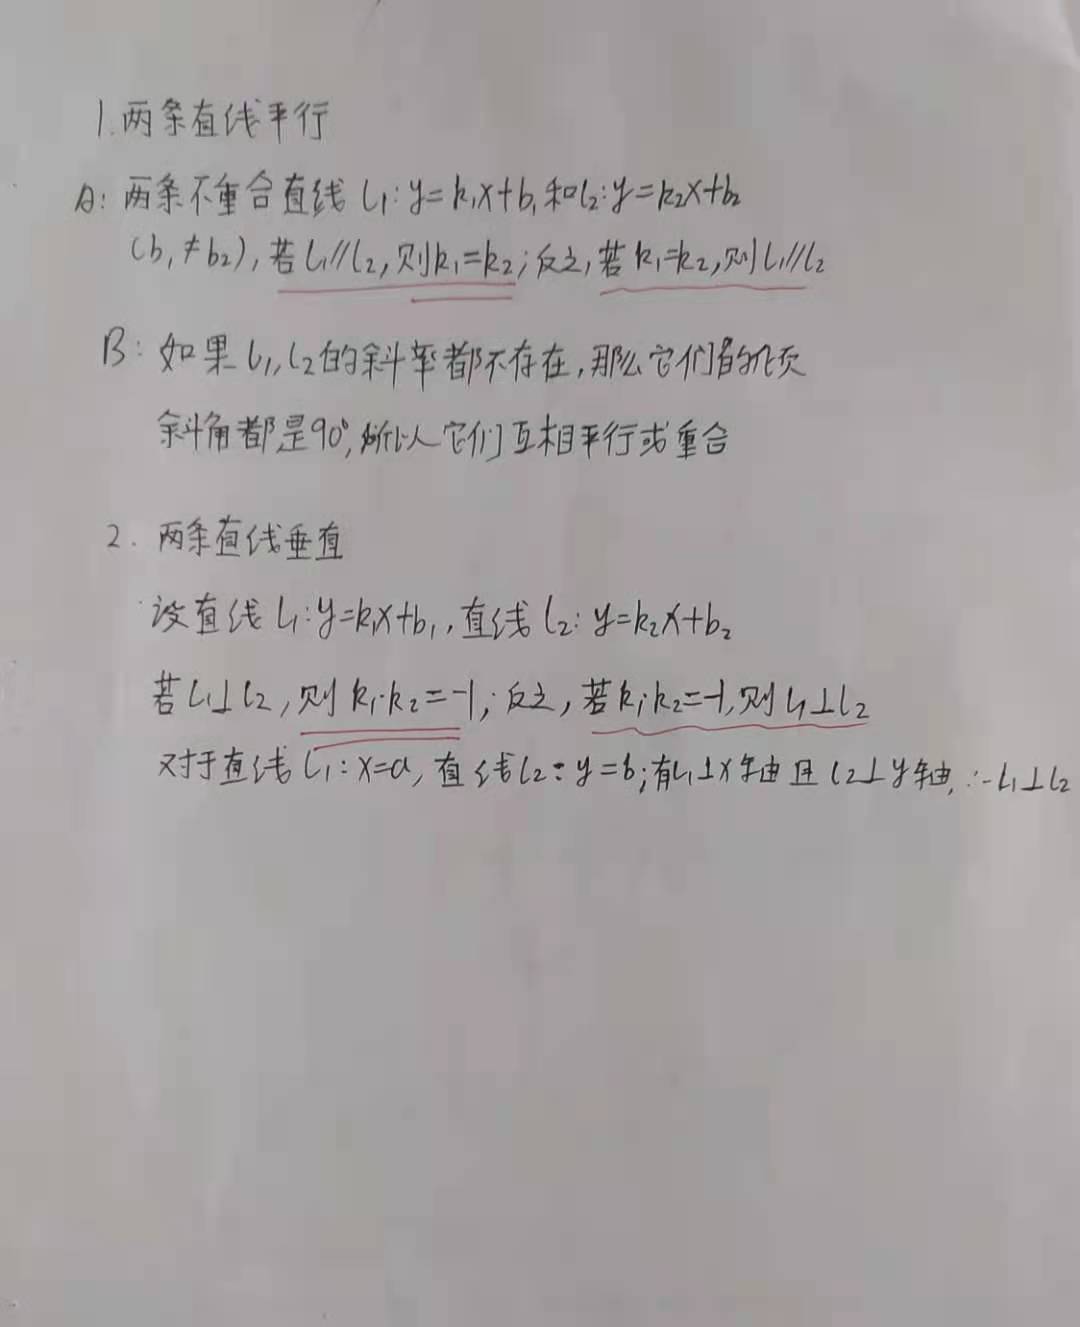 1.两条直线平行
A:两条不重合直线 l₁:y=k₁x+b₁和l₂:y=k₂x+b₂
(b₁≠b₂),若l₁//l₂,则k₁=k₂;反之,若k₁=k₂,则l₁//l₂
B:如果l₁,l₂的斜率都不存在,那么它们的倾
斜角都是90°,所以它们互相平行或重合
2.两条直线垂直
设直线l₁:y=k₁x+b₁,直线l₂:y=k₂x+b₂
若l₁⊥l₂,则k₁·k₂=-1;反之,若k₁·k₂=-1,则l₁⊥l₂
对于直线l₁:x=a,直线l₂:y=b;有l₁⊥x轴且l₂⊥y轴,∴l₁⊥l₂